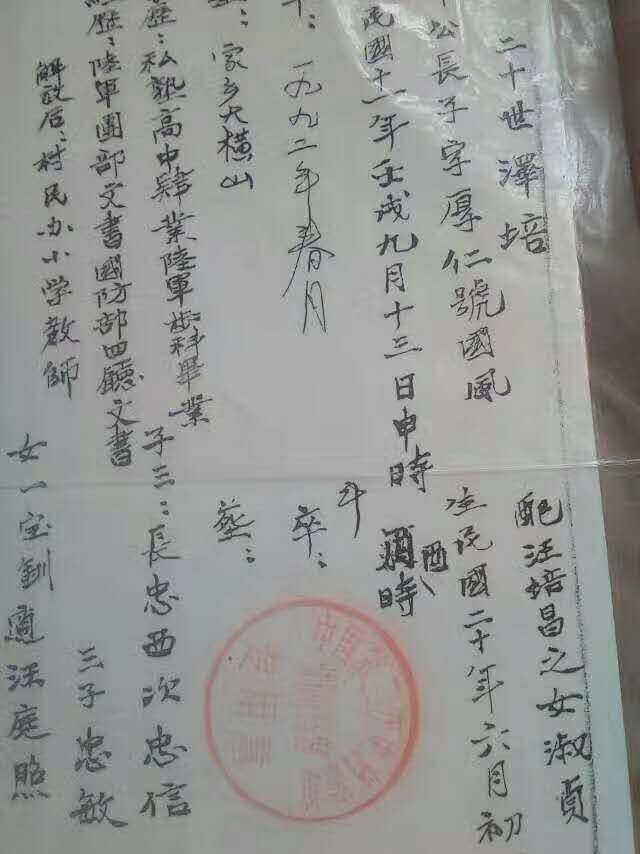 二十世澤培
公長子字厚仁號國风
民國十一年壬戌九月十三日申時
一九九二年春月
家乡大横山
歷：私塾高中肄業陸軍步科畢業
歷：陸軍團部文書國防部四廳文書
解放后：村民办小学教師
配汪培昌之女淑貞
生民國二十年六月初
斗
酉時
卒：
葬：
子三：長忠西次忠信
三子忠敏
女一宝釧適汪庭照